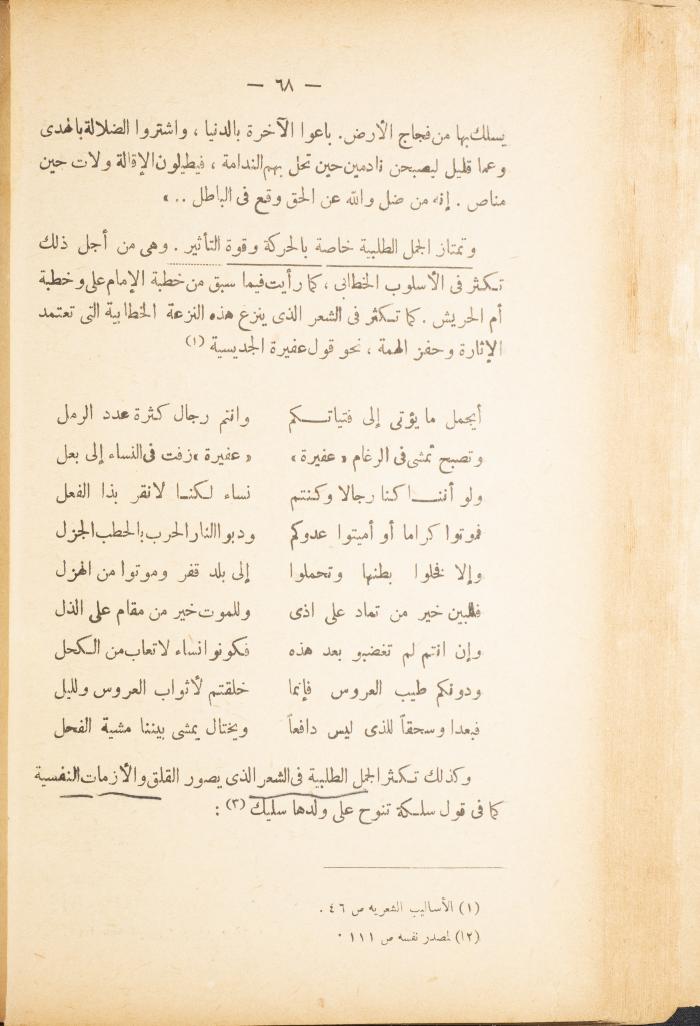 — ٦٨ —
يسلك بها من فجاج الأرض. باعوا الآخرة بالدنيا ، واشتروا الضلالة بالهدى
وعما قليل ليصبحن نادمين حين تحل بهم الندامة ، فيطلبون الإقالة ولات حين
مناص . إنه من ضل والله عن الحق وقع فى الباطل .. »
وتمتاز الجمل الطلبية خاصة بالحركة وقوة التأثير . وهى من أجل ذلك
تكثر فى الأسلوب الخطابى ، كما رأيت فيما سبق من خطبة الإمام على وخطبة
أم الحريش . كما تكثر فى الشعر الذى ينزع هذه النزعة الخطابية التى تعتمد
الإثارة وحفز الهمة ، نحو قول عفيرة الجديسية (١)
أيجمل ما يؤتى إلى فتياتكم وانتم رجال كثرة عدد الرمل
وتصبح تمشى فى الرغام « عفيرة » « عفيرة » زفت فى النساء إلى بعل
ولو أننا كنا رجالا وكنتم نساء لكنا لانقر بذا الفعل
فموتوا كراما أو أميتوا عدوكم ودبوا النار الحرب بالحطب الجزل
وإلا فخلوا بطنها وتحملوا إلى بلد قفر وموتوا من الهزل
فللبين خير من تماد على اذى وللموت خير من مقام على الذل
وإن انتم لم تغضبو بعد هذه فكونو انساء لاتعاب من الكحل
ودونكم طيب العروس فإنما خلقتم لأثواب العروس ولليل
فبعدا وسحقاً للذى ليس دافعاً ويختال يمشى بيننا مشية الفحل
وكذلك تكثر الجمل الطلبية فى الشعر الذى يصور القلق والأزمات النفسية
كما فى قول سلكة تنوح على ولدها سليك (٣) :
(١) الأساليب الشعريه ص ٤٦ .
(١٢) لمصدر نفسه ص ١١١ ·